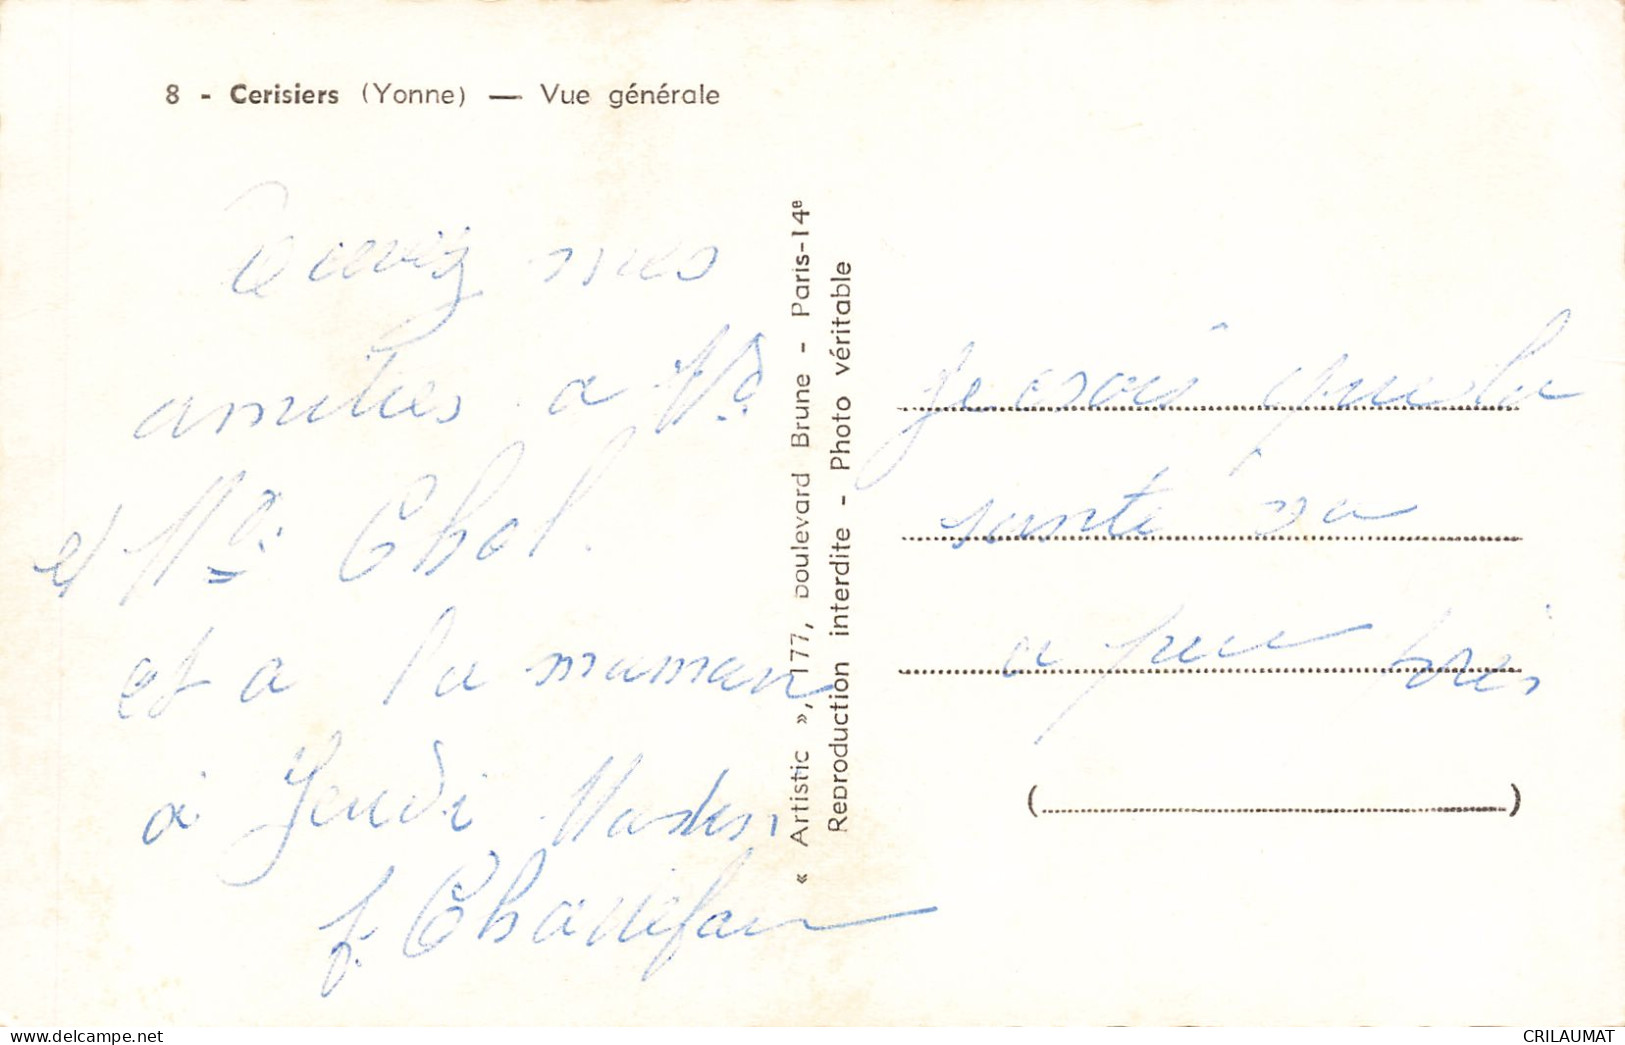 8 - Cerisiers (Yonne) — Vue générale
mes
amities a Md
et Md. Chol.
et a la maman
a Jeudi
f.
« Artistic », 177, boulevard Brune - Paris-14e
Reproduction interdite - Photo véritable
Je crois que la
sante va
a peu près
(                )
delcampe.net
CRILAUMAT